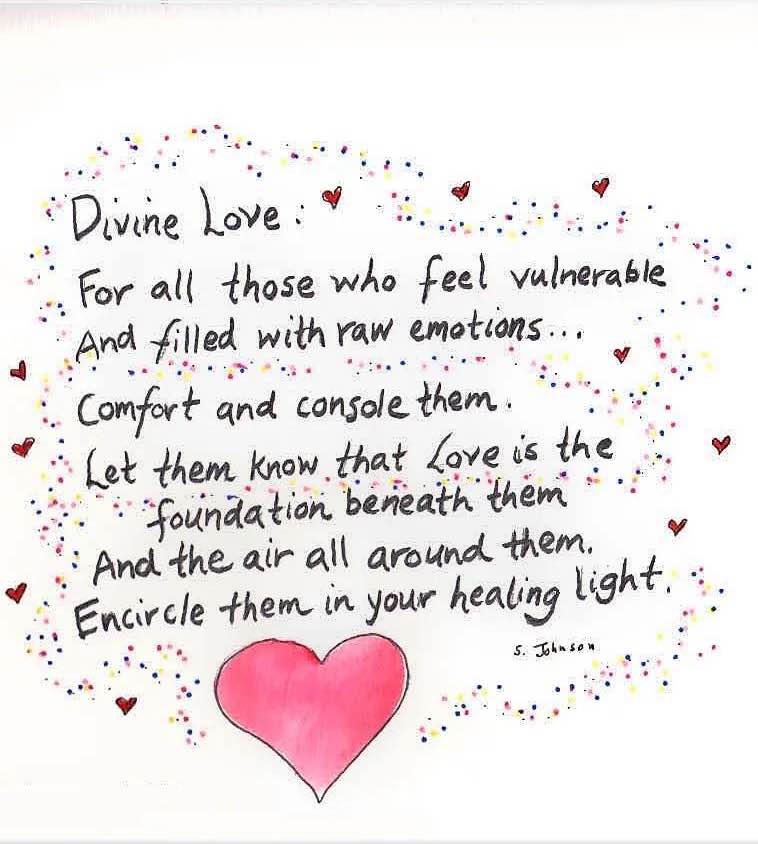 Divine Love:
For all those who feel vulnerable
And filled with raw emotions...
Comfort and console them.
Let them know that Love is the
foundation beneath them
And the air all around them.
Encircle them in your healing light.
S. Johnson